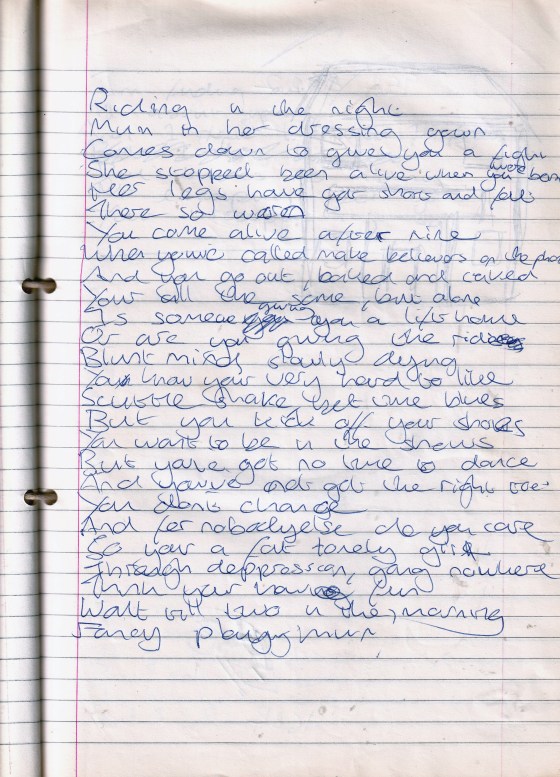 Riding in the night
Mum in her dressing gown
Comes down to give you a fight
She stopped been alive when you were born
Her legs have got short and fat
There so worn
You come alive after nine
When you've called make believers on the phone
And you go out, baked and caked
Your still the same, but alone
Is someone giving you a lift home
Or are you giving the ride
Blunt minds slowly dying
You know your very hard to like
Scuttle shake get the blues
But you kick off your shoes
You want to be in the shows
But you've got no time to dance
And you've not got the right toes
You don't change
And for nobody else do you care
So your a fat lonely girl
Through deppression, going nowhere
Think your having fun
Wait till two in the morning